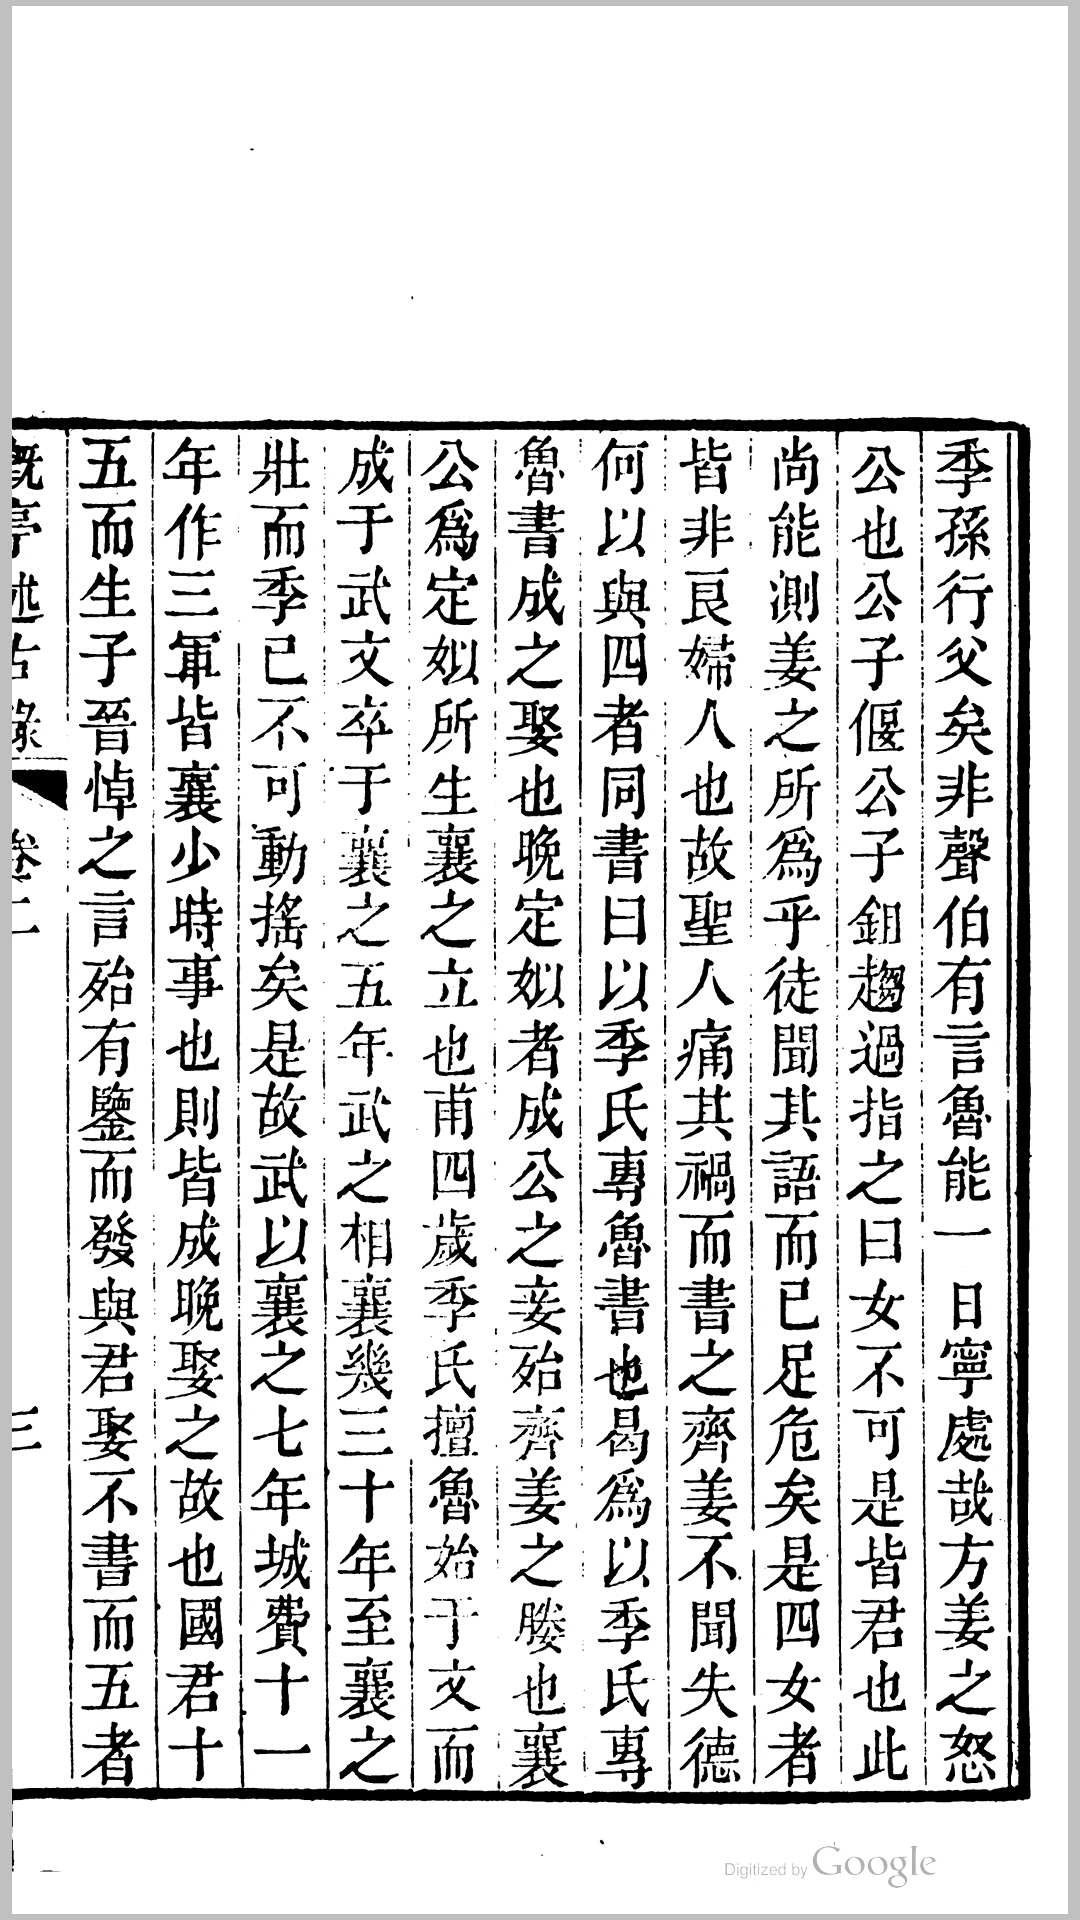 季孫行父矣非聲伯有言魯能一日寧處哉方姜之怒
公也公子偃公子鉏趨過指之曰女不可是皆君也此
尚能測姜之所爲乎徒聞其語而已足危矣是四女者
皆非良婦人也故聖人痛其禍而書之齊姜不聞失德
何以與四者同書曰以季氏專魯書也曷爲以季氏專
魯書成之娶也晚定姒者成公之妾殆齊姜之媵也襄
公爲定姒所生襄之立也甫四歲季氏擅魯始于文而
成于武文卒于襄之五年武之相襄幾三十年至襄之
壯而季已不可動搖矣是故武以襄之七年城費十一
年作三軍皆襄少時事也則皆成晚娶之故也國君十
五而生子晉悼之言殆有鑒而發與君娶不書而五者
溉亭述古錄 卷二 三
Digitized by Google